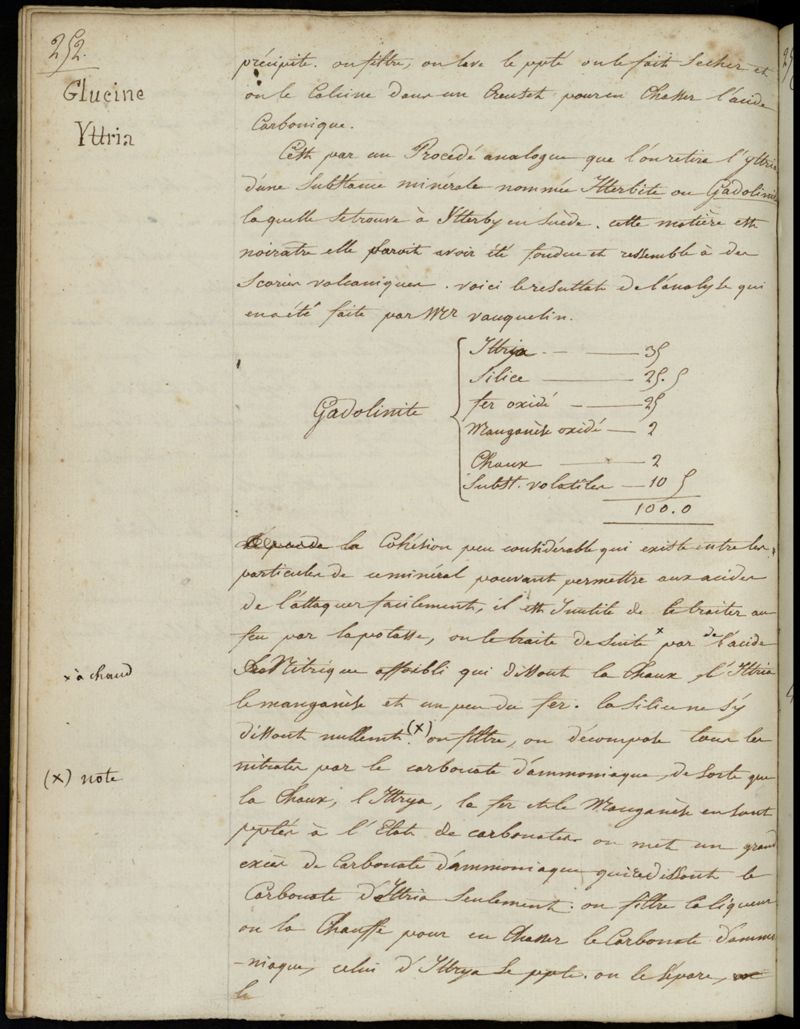 252.
Glucine
Yttria
précipite. on filtre, on lave le ppté on le fait secher et
on le Calcine dans un Creuset pour en Chasser l'acide
Carbonique.
C'est par un Procédé analogue que l'on retire l'yttria
d'une substance minérale nommée Itterbite ou Gadolinite
laquelle se trouve à Ytterby en Suède. cette matière est
noirâtre elle paroit avoir été fondue et ressemble à des
Scories volcaniques. voici le resultat de l'analyse qui
en a été faite par Mr vauquelin.
Gadolinite
Ittrya — 35
Silice — 25.5
fer oxidé — 25
Manganèse oxidé — 2
Chaux — 2
Subst. volatiles — 10 5
100.0
la Cohésion peu considérable qui existe entre les
particules de ce minéral pouvant permettre aux acides
de l'attaquer facilement, il est Inutile de le traiter au
feu par la potasse, on le traite de suite x par de l'acide
x à chaud
Nitrique affoibli qui dissout la Chaux, l'Ittria
le manganèse et un peu du fer. la Silice ne s'y
dissout nullemt. (x) on filtre, on décompose tous les
(x) note
nitrates par le carbonate d'ammoniaque, de sorte que
la Chaux, l'Ittrya, le fer et le Manganèse en sont
pptés à l'Etat de carbonates on met un grand
excès de Carbonate d'ammoniaque qui redissout le
Carbonate d'Ittria Seulement. on filtre la liqueur
on la Chauffe pour en Chasser le Carbonate d'ammo
-niaque, celui d'Ittrya se ppte. on le Sépare,
le